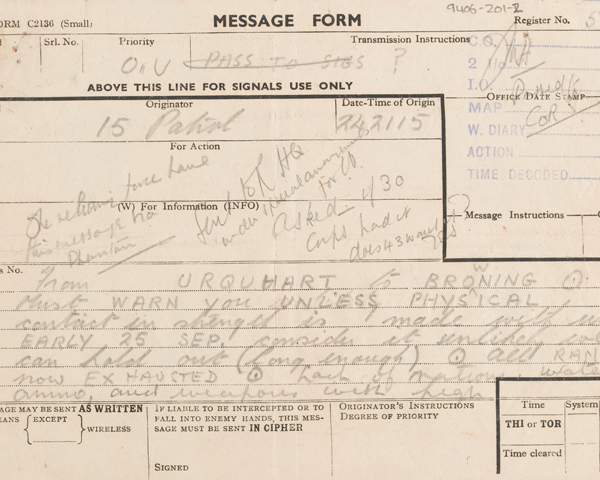 ORM C2136 (Small)
MESSAGE FORM
9406-201-2
Register No. 5
Srl. No.
Priority
Transmission Instructions
O.U
PASS TO SIGS ?
C.O.
2 I/C
I.O.
ABOVE THIS LINE FOR SIGNALS USE ONLY
OFFICE DATE STAMP
Originator
Date-Time of Origin
MAP
15 Patrol
242115
W. DIARY
For Action
ACTION
TIME DECODED
The relieving force have
this message via
Phantom
(W) For Information (INFO)
Message Instructions
s No.
From URQUHART to BROWNING
Must WARN you UNLESS PHYSICAL
contact in strength is made with us
EARLY 25 SEP. consider it unlikely we
can hold out (long enough) All RAN
now EXHAUSTED Lack of rations, wate
ammo, and weapons with high
AGE MAY BE SENT AS WRITTEN
EANS
EXCEPT
WIRELESS
IF LIABLE TO BE INTERCEPTED OR TO
FALL INTO ENEMY HANDS, THIS MES-
SAGE MUST BE SENT IN CIPHER
SIGNED
ORIGINATOR'S INSTRUCTIONS
DEGREE OF PRIORITY
Time
System
THI or TOR
Time cleared